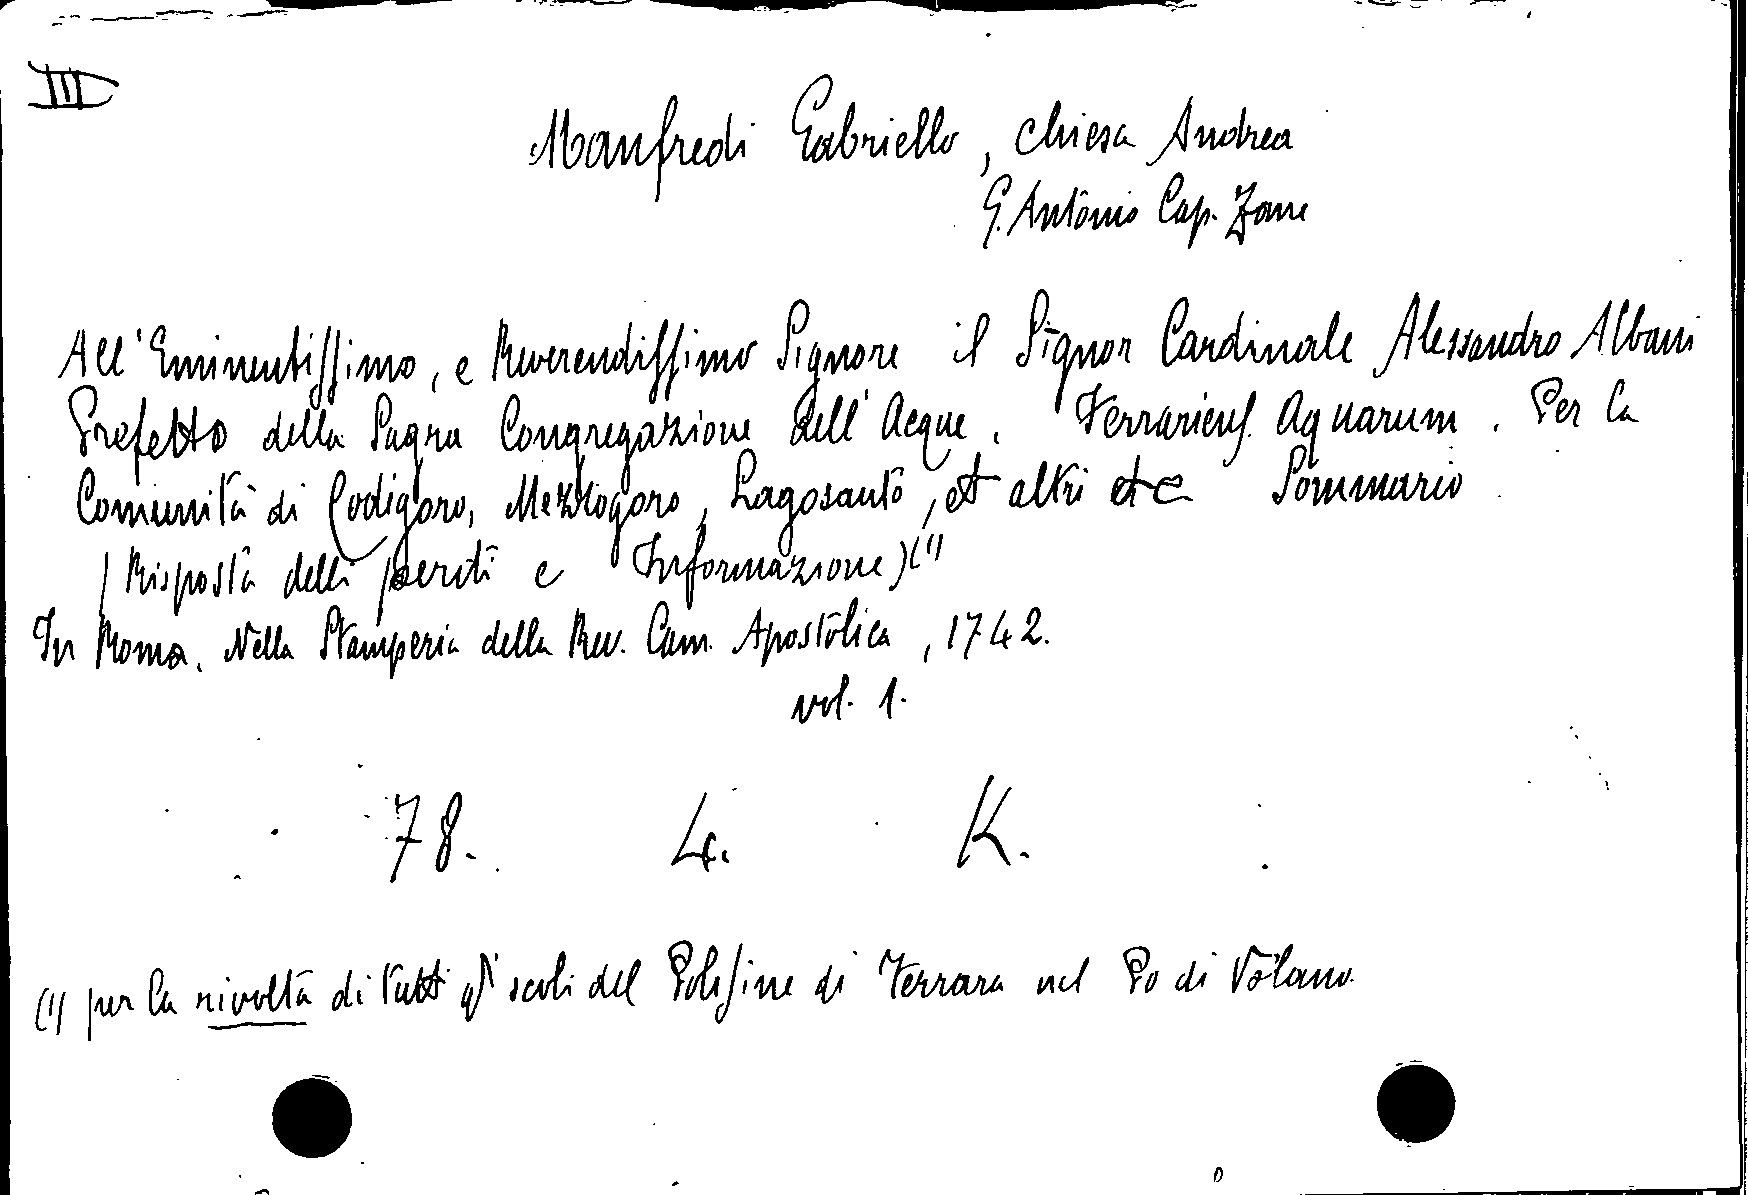 III
Manfredi Gabriello, Chiesa Andrea
G. Antonio Cap. Zane
All'Eminentissimo, e Reverendissimo Signore il Signor Cardinale Alessandro Albani
Prefetto della Sagra Congregazione dell'Acque. Ferrariens. Aquarum. Per la
Comunità di Codigoro, Mezzogoro, Lagosanto, et altri etc Sommario
(Risposta delli periti e Informazione)(1)
In Roma. Nella Stamperia della Rev. Cam. Apostolica, 1742.
vol. 1.
78. 4. K.
(1) per la rivolta di tutti gl'i scoli del Polesine di Ferrara nel Po di Volano.